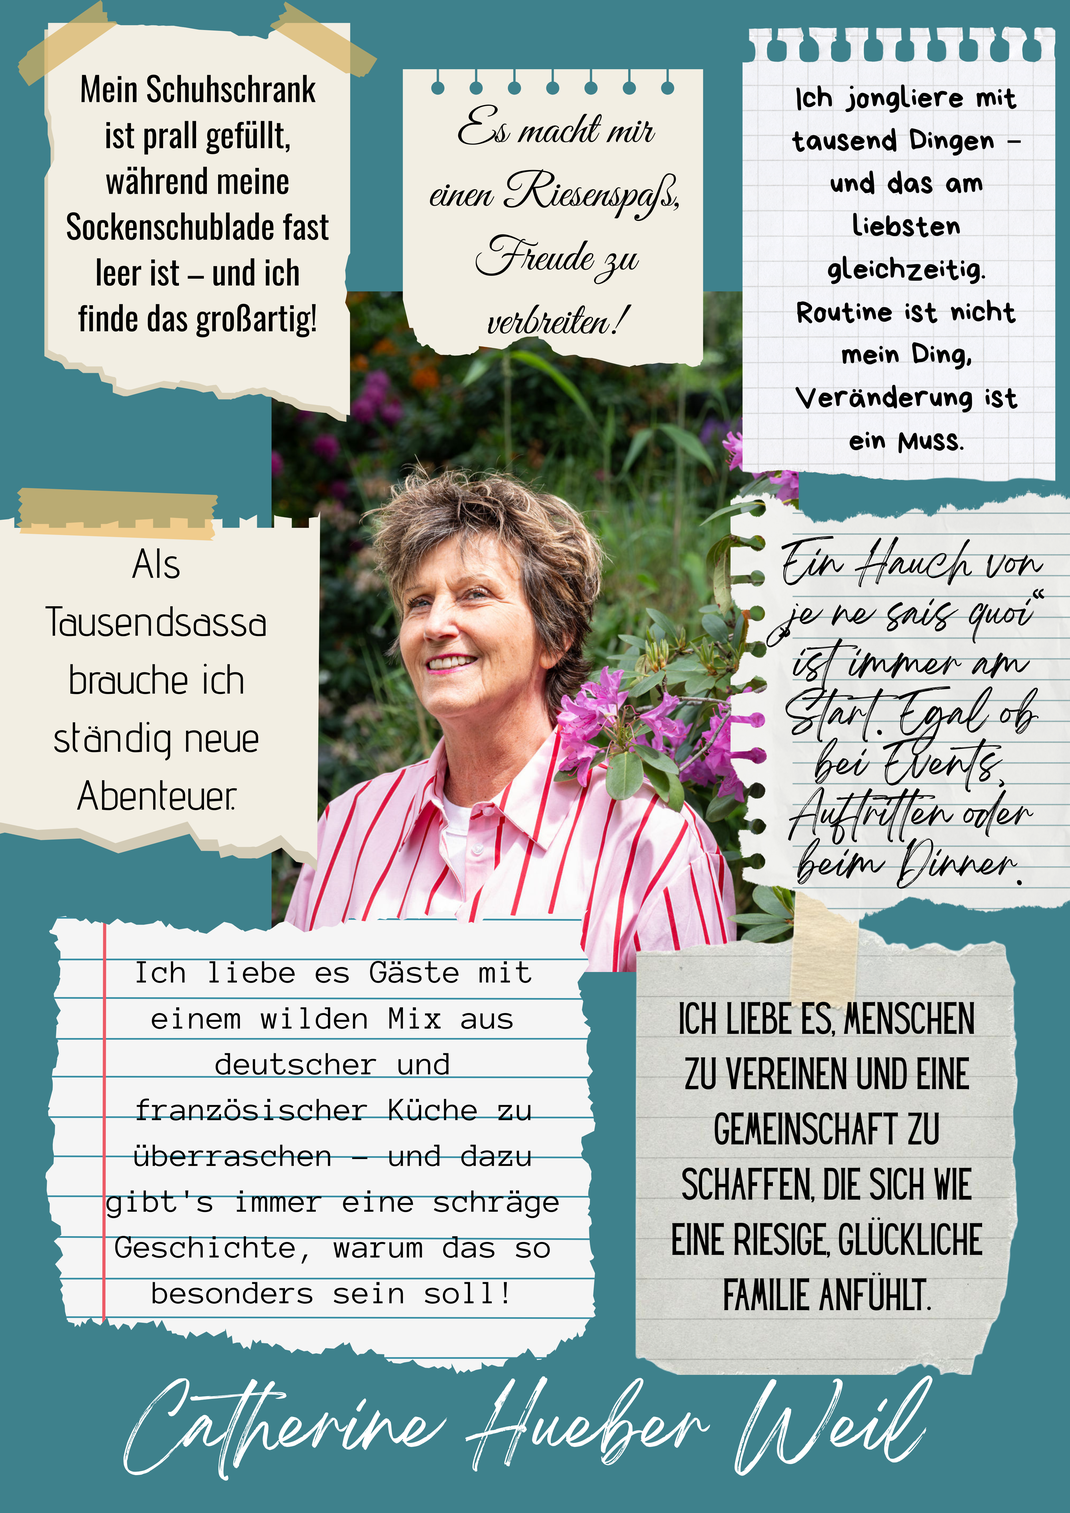 Mein Schuhschrank
ist prall gefüllt,
während meine
Sockenschublade fast
leer ist – und ich
finde das großartig!
Es macht mir
einen Riesenspaß,
Freude zu
verbreiten!
Ich jongliere mit
tausend Dingen –
und das am
liebsten
gleichzeitig.
Routine ist nicht
mein Ding,
Veränderung ist
ein Muss.
Als
Tausendsassa
brauche ich
ständig neue
Abenteuer.
Ein Hauch von
„je ne sais quoi“
ist immer am
Start. Egal ob
bei Events,
Auftritten oder
beim Dinner.
Ich liebe es Gäste mit
einem wilden Mix aus
deutscher und
französischer Küche zu
überraschen – und dazu
gibt's immer eine schräge
Geschichte, warum das so
besonders sein soll!
ICH LIEBE ES, MENSCHEN
ZU VEREINEN UND EINE
GEMEINSCHAFT ZU
SCHAFFEN, DIE SICH WIE
EINE RIESIGE, GLÜCKLICHE
FAMILIE ANFÜHLT.
Catherine Hueber Weil